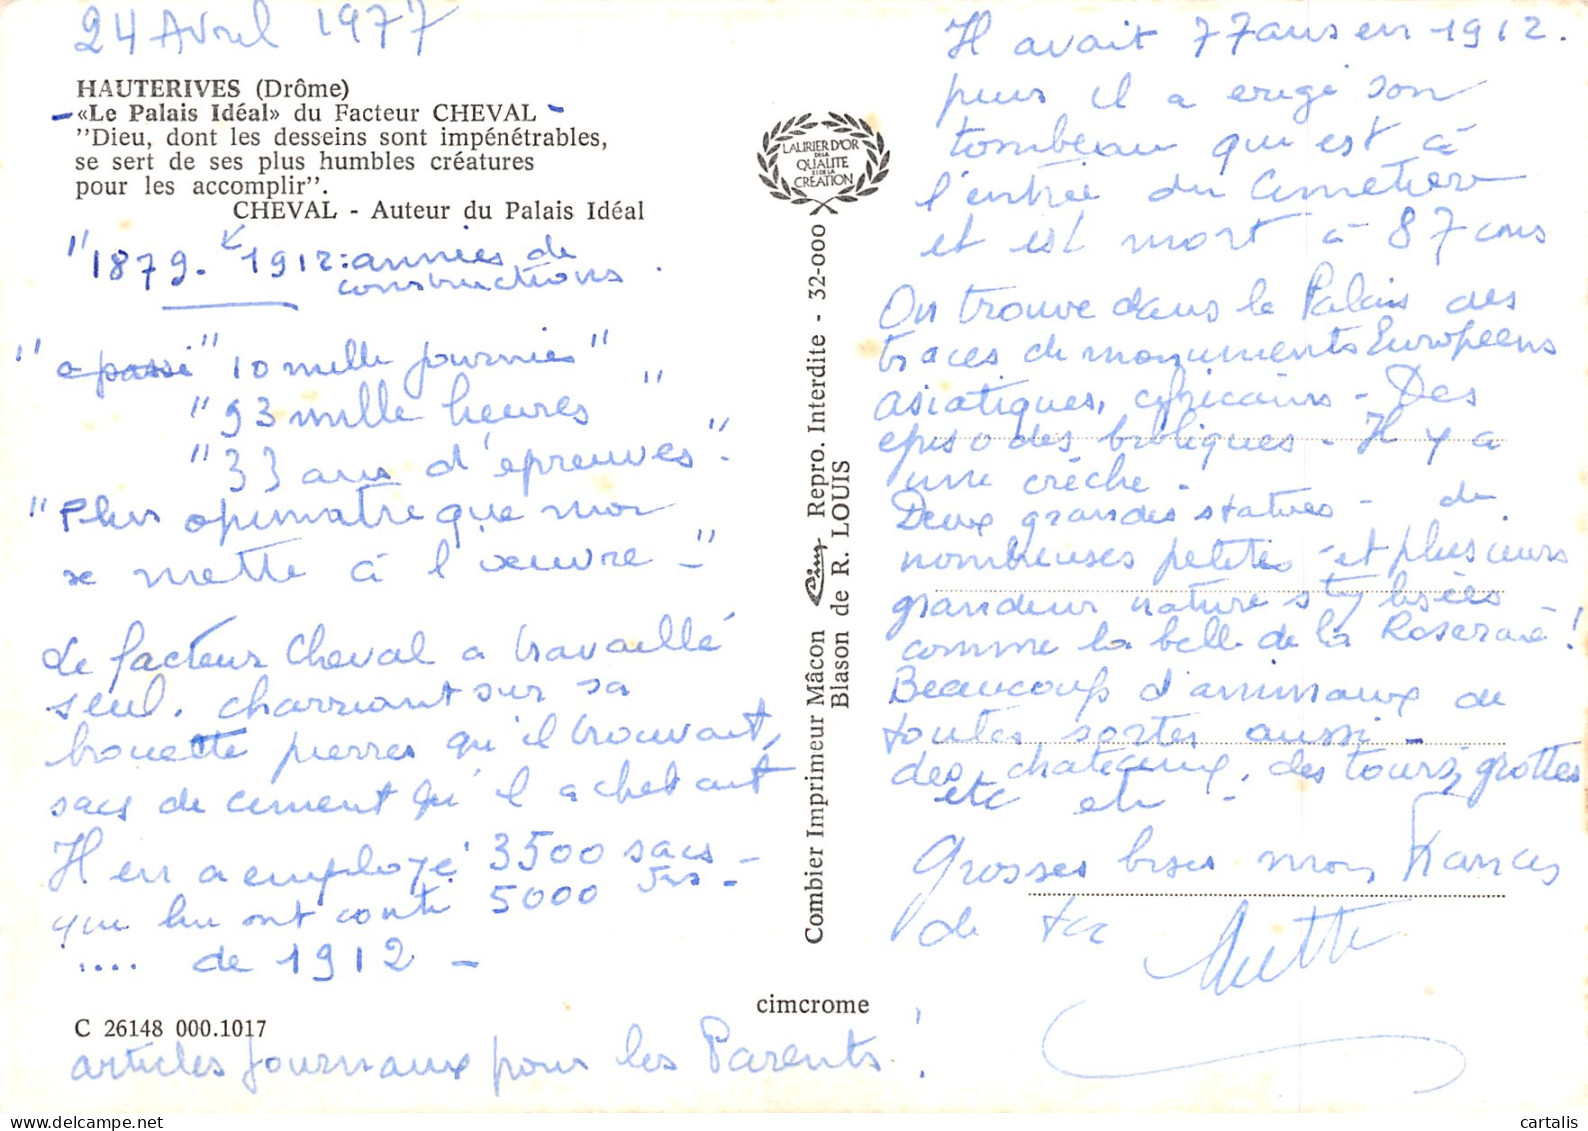 24 Avril 1977
HAUTERIVES (Drôme)
- «Le Palais Idéal» du Facteur CHEVAL -
"Dieu, dont les desseins sont impénétrables,
se sert de ses plus humbles créatures
pour les accomplir".
CHEVAL - Auteur du Palais Idéal
" 1879. 1912: années de
constructions.
" a passé " 10 mille journées "
" 93 mille heures "
" 33 ans d'épreuves".
" Plus opiniatre que moi
se mette à l'œuvre - "
Le facteur Cheval a travaillé
seul. charriant sur sa
brouette pierres qu'il trouvait,
sacs de ciment qu'il achetait
Il en a employé 3500 sacs -
qui lui ont couté 5000 frs -
.... de 1912 -
C 26148 000.1017
articles Journaux pour les Parents !
LAURIER D'OR
DE LA
QUALITE
ET DE LA
CREATION
Combier Imprimeur Mâcon Cim Repro. Interdite - 32-000
Blason de R. LOUIS
cimcrome
Il avait 77 ans en 1912.
puis il a erigé son
tombeau qui est à
l'entrée du Cimetière
et est mort à 87 ans
On trouve dans le Palais des
traces de monuments Européens
asiatiques, africains - Des
episodes bibliques - Il y a
une crèche -
Deux grandes statues - de
nombreuses petites - et plusieurs
grandeur nature stylisées -
comme la belle de la Roseraie !
Beaucoup d'animaux de
toutes sortes aussi -
des chateaux, des tours, grottes
etc etc -
Grosses bises mon Francis
de ta